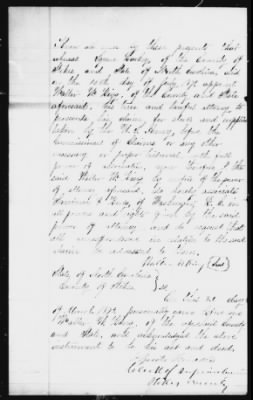 Know all men by these presents that
whereas James Tuttle, of the County of
Stokes and State of North Carolina, did
on the 10th day of July 1871 appoint
Walter W. King, of the County and State
aforesaid, his true and lawful attorney to
prosecute his claim for stores and supplies
taken by the U.S. Army, before the
Commissioners of Claims or any other
necessary or proper tribunal, with full
power of substitution, now therefore I the
said Walter W. King by virtue of the power
of attorney aforesaid, do hereby associate
of Washington D. C. in
all powers and rights given by the said
power of attorney, and do request that
all correspondence in relation to the said
claim be addressed to him.
Walter W. King (Seal)
State of North Carolina
County of Stokes } SS.
On this 20 day
of March 1872, personally came
Walter W. King, of the aforesaid County
and State, and acknowledged the above
instrument to be his act and deed.
Clerk of Superior Court
Stokes County